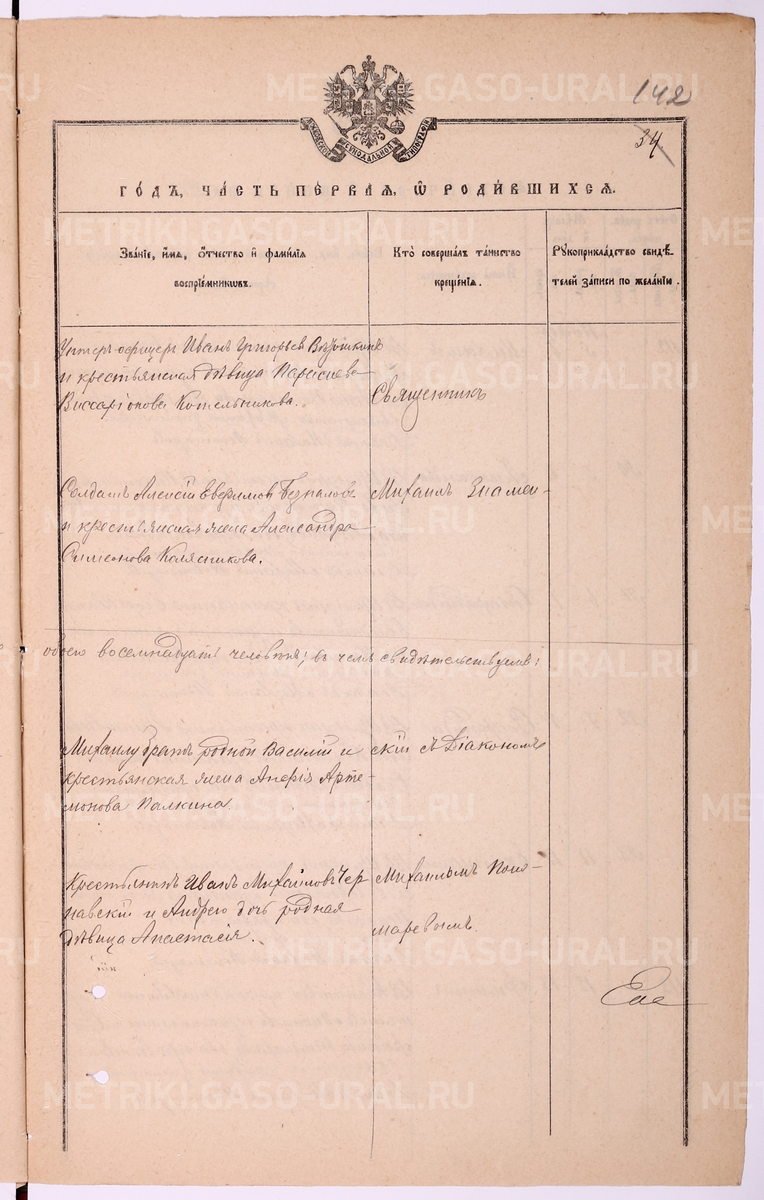 142
34
МОСКОВСКОЙ СѴНОДАЛЬНОЙ ТИПОГРАФІИ
ГОДЪ, ЧАСТЬ ПЕРВАЯ, Ѡ РОДИВШИХСЯ.
Званіе, имя, отчество и фамилія
воспріемниковъ.
Кто совершалъ таинство
крещенія.
Рукоприкладство свидѣ-
телей записи по желанію.
Унтеръ-офицеръ Иванъ Григорьев
и крестьянская дѣвица Параскева
Виссаріонова Котельникова.
Священникъ
Солдатъ Алексій Ефтимов
и крестьянская жена Александра
Симеонова Колясникова.
Михаилъ Знамен-
обоего восемнадцать человѣкъ; въ чемъ свидѣтельствуемъ:
Михаилу братъ родной Василій и
крестьянская жена Анфія Арте-
монова Палкина.
скій съ Діакономъ
Крестьянинъ Иванъ Михайловъ Чер-
навскій и Андрею дочь родная
дѣвица Анастасія.
Михаиломъ Поно-
маревымъ.
METRIKI.GASO-URAL.RU